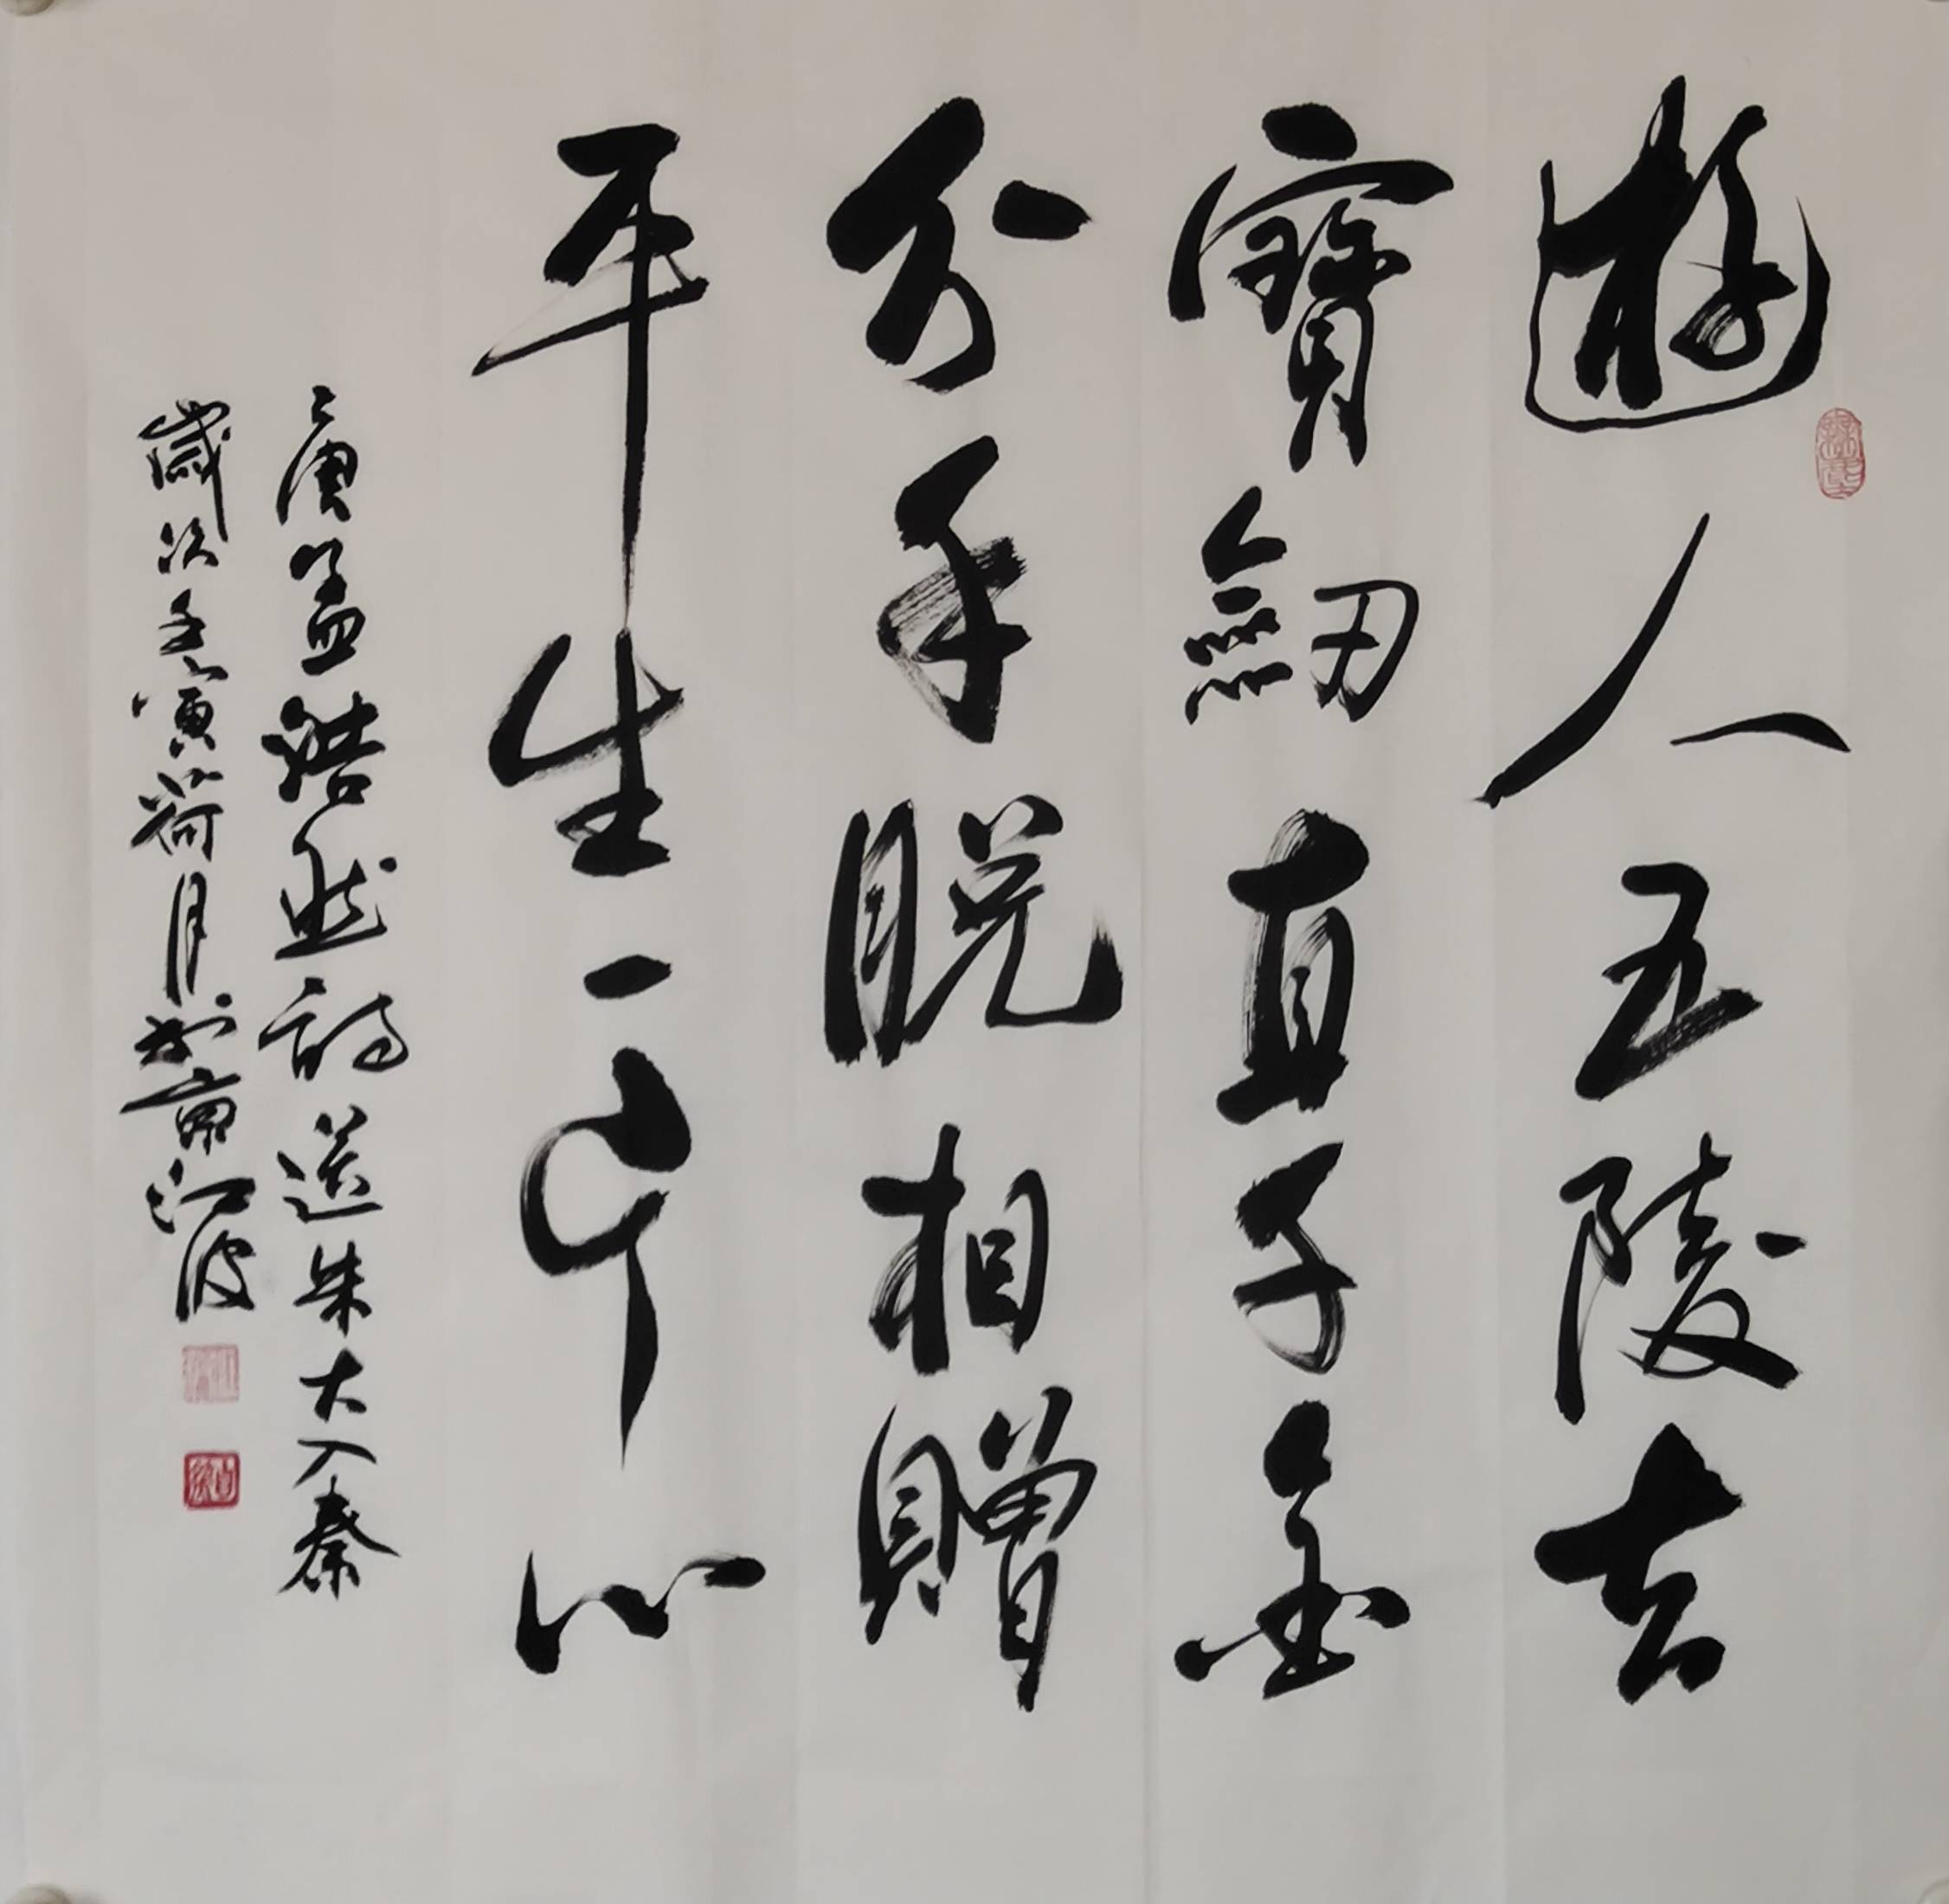 遊人五陵去
寶劒直千金
分手脱相贈
平生一片心
唐孟浩然詩送朱大入秦
歲次壬寅荷月於京江波